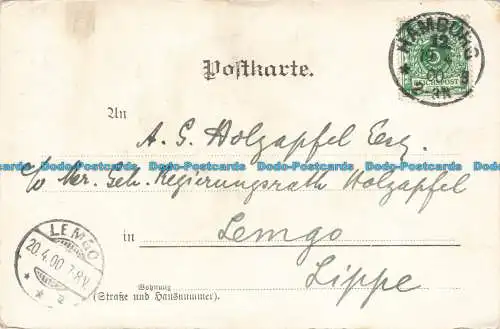 Postkarte.
HAMBURG
12
00
REICHSPOST
An
A. G. Holzapfel Esq.
c/o Hr. Geh. Regierungsrath Holzapfel
in
Lemgo
Lippe
LEMGO
20.4.00 7-8V
Wohnung
(Straße und Hausnummer).
Dodo-Postcards Dodo-Postcards Dodo-Postcards Dodo-Postcards Dodo-Postcards Dodo-Postcards